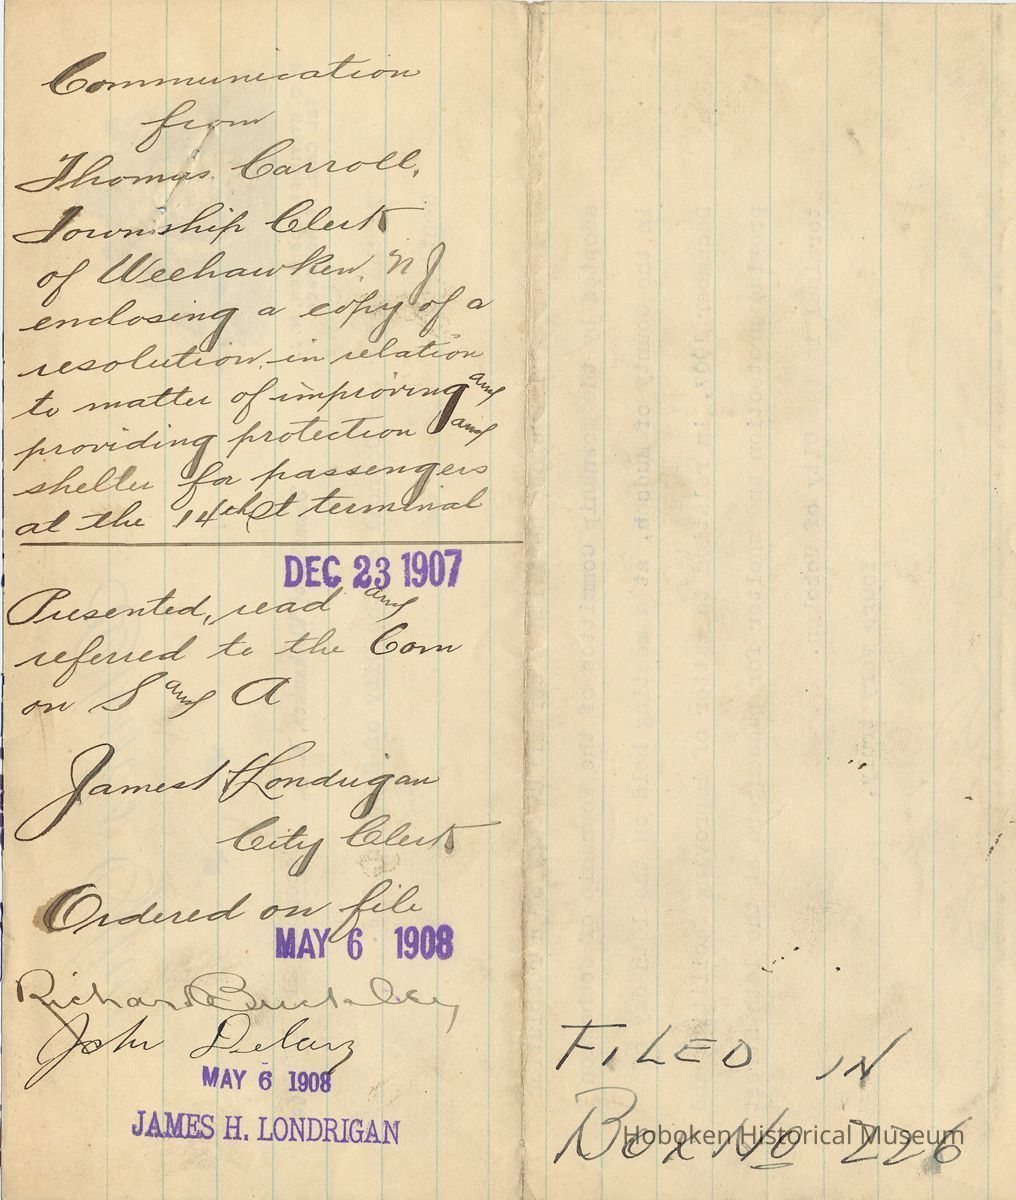 Communication
from
Thomas Carroll,
Township Clerk
of Weehawken, N J
enclosing a copy of a
resolution, in relation
to matter of improving and
providing protection and
shelter for passengers
at the 14th St terminal
DEC 23 1907
Presented, read and
referred to the Com
on S and A
James H Londrigan
City Clerk
Ordered on file
MAY 6 1908
Richard Buckley
John
MAY 6 1908
JAMES H. LONDRIGAN
FILED IN
BOX NO 226
Hoboken Historical Museum